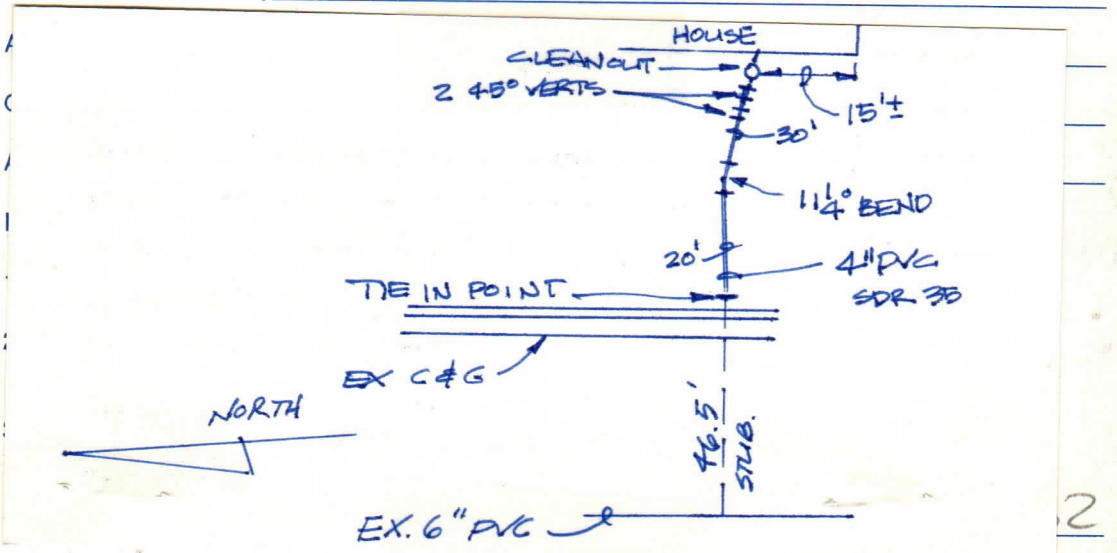 HOUSE
CLEANOUT
2 45° VERTS
15'±
30'
11¼° BEND
20'
4" PVC
SDR 35
TIE IN POINT
EX C & G
NORTH
46.5'
STUB.
EX. 6" PVC
2